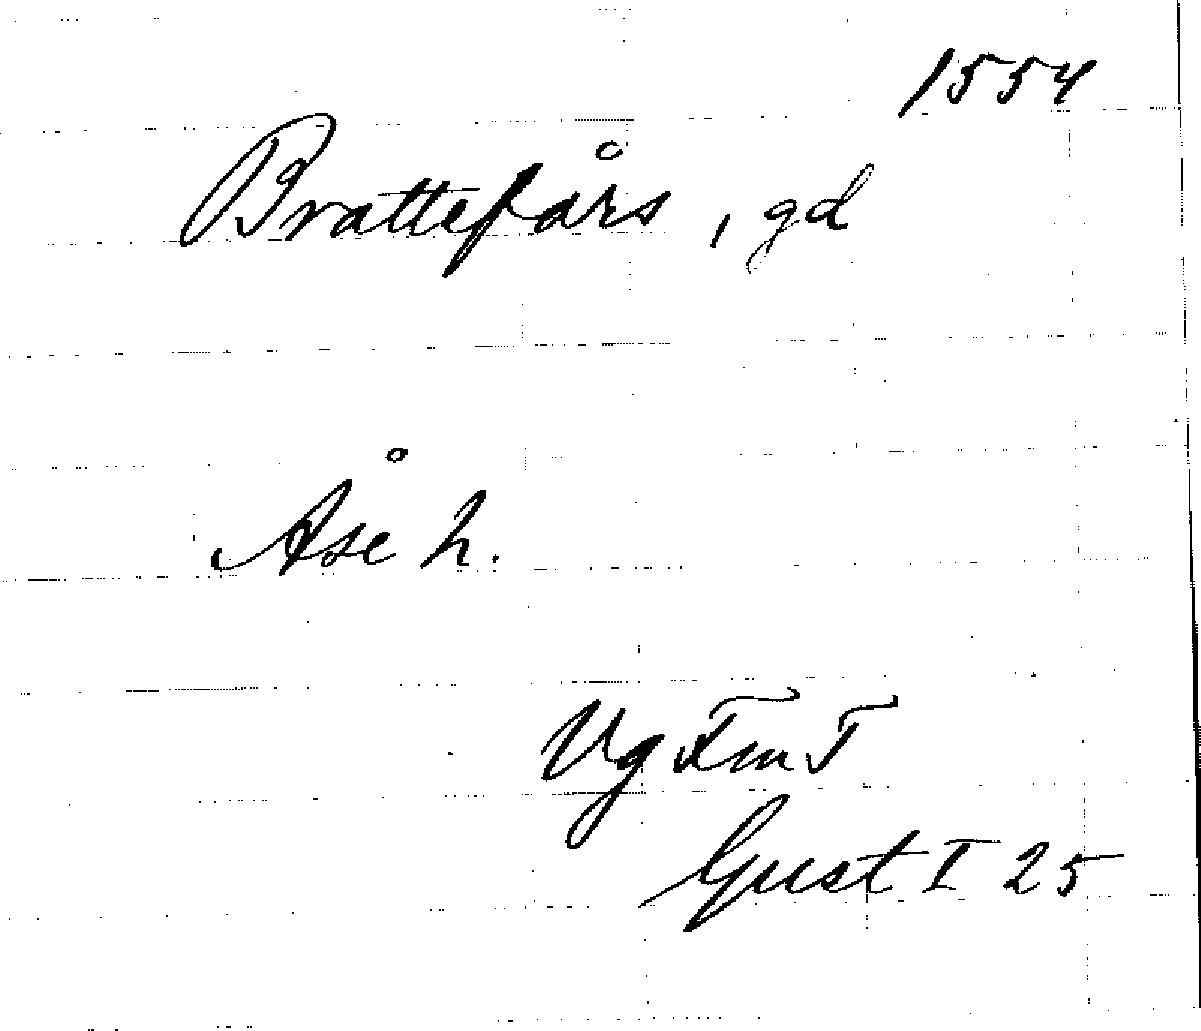 1554
Brattefårs, gd
Åse h.
Vg FmT
Gust I 25